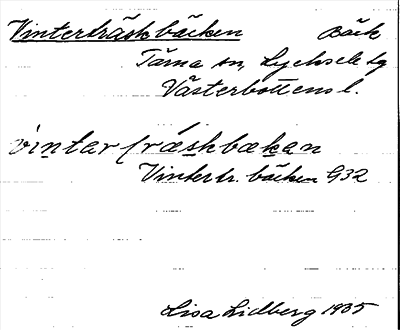 Vinterträskbäcken Bäck
Tärna sn, Lycksele lg
Västerbottens l.
vintar fräskbäkan
Vintertr. bäcken G32
Lisa Lidberg 1935